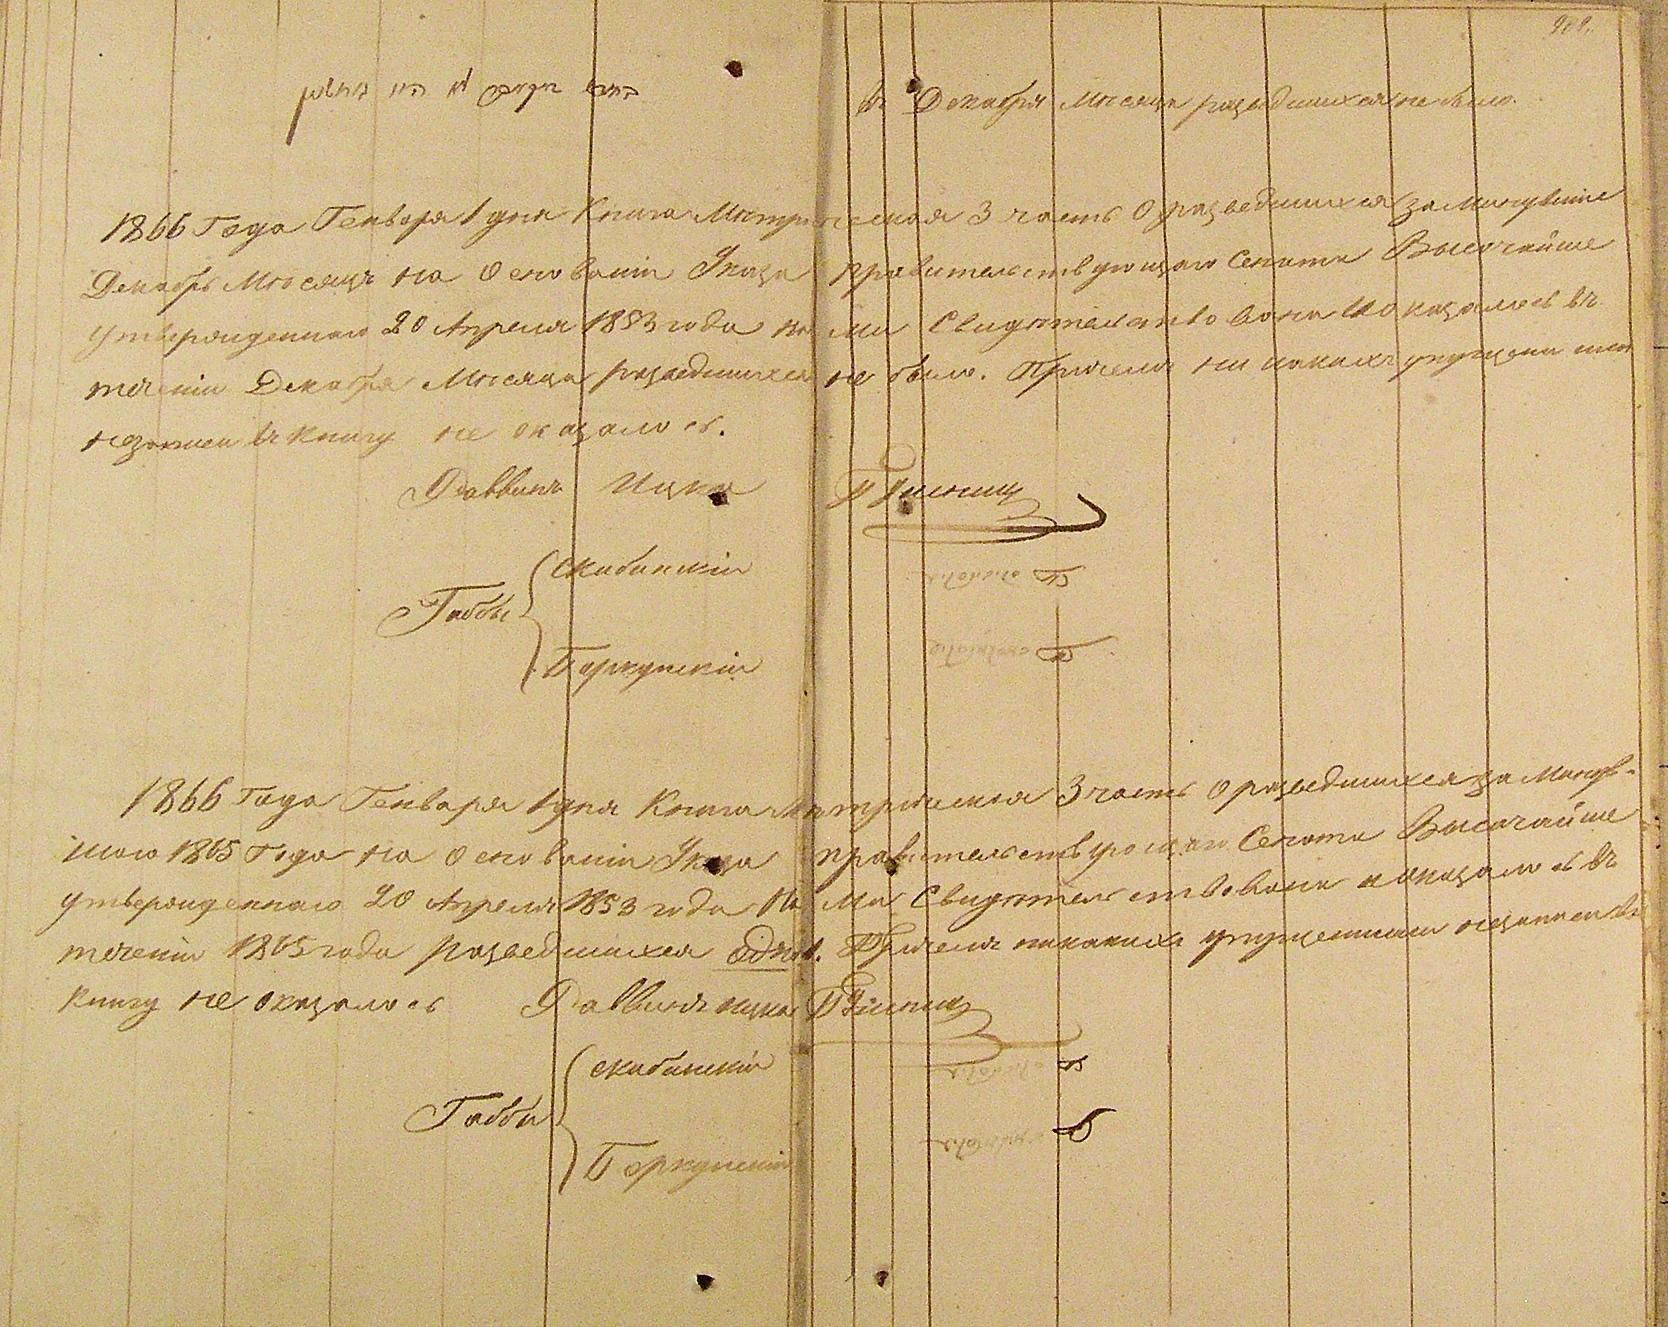 בחודש דעקאבר לא היו גרושין
въ Декабрѣ Мѣсяцѣ разведшихся не было.
1866 Года Генваря 1 дня Книга Метрическая 3 часть О разведшихся за минувшіе
Декабрь Мѣсяцъ на Основаніи Указа правительствующаго Сената Высочайше
утвержденнаго 20 Апреля 1853 года на ми Свидѣтельство вона И оказалось въ
теченіи Декабря Мѣсяца разведшихся не было. Причемъ ни какихъ упущеній
незаписи въ книгу не оказалось.
Раввинъ Ицка
Габбы
Скибинскій
Боркунскій
1866 Года Генваря 1 дня Книга Метрическая 3 часть О разведшихся за минув-
шаго 1865 Года на Основаніи Указа правительствующаго Сената Высочайше
утвержденнаго 20 Апреля 1853 года На ми Свидѣтельствована и оказалось въ
теченіи 1865 года разведшихся Причемъ никакихъ упущеній незаписи въ
книгу не оказалось Раввинъ Ицка
Габбы
Скибинскій
Боркунскій